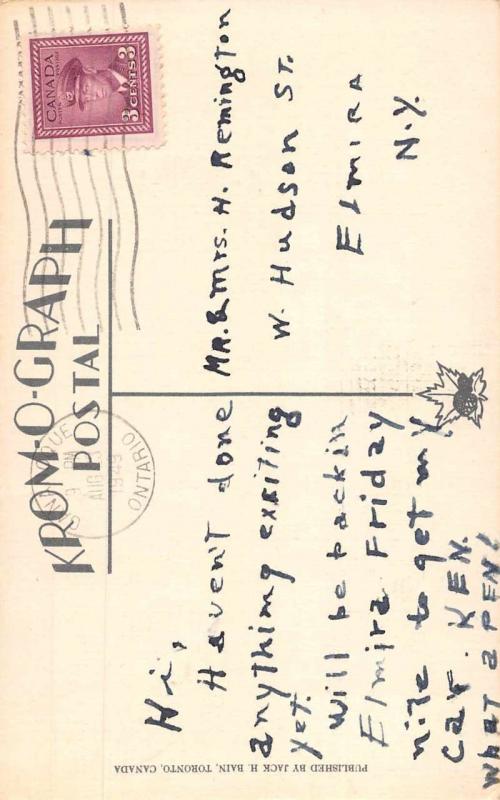 KROM-O-GRAPH
POSTAL
CANADA
POSTES POSTAGE
3 CENTS 3
9 PM
AUG
1949
ONTARIO
Hi,
Haven't done
anything exciting
yet.
Will be back in
Elmira Friday
nite to get my
car. KEN.
WHAT A PEN!
MR. & Mrs. H. Remington
W. Hudson ST.
Elmira
N.Y.
PUBLISHED BY JACK H. BAIN, TORONTO, CANADA